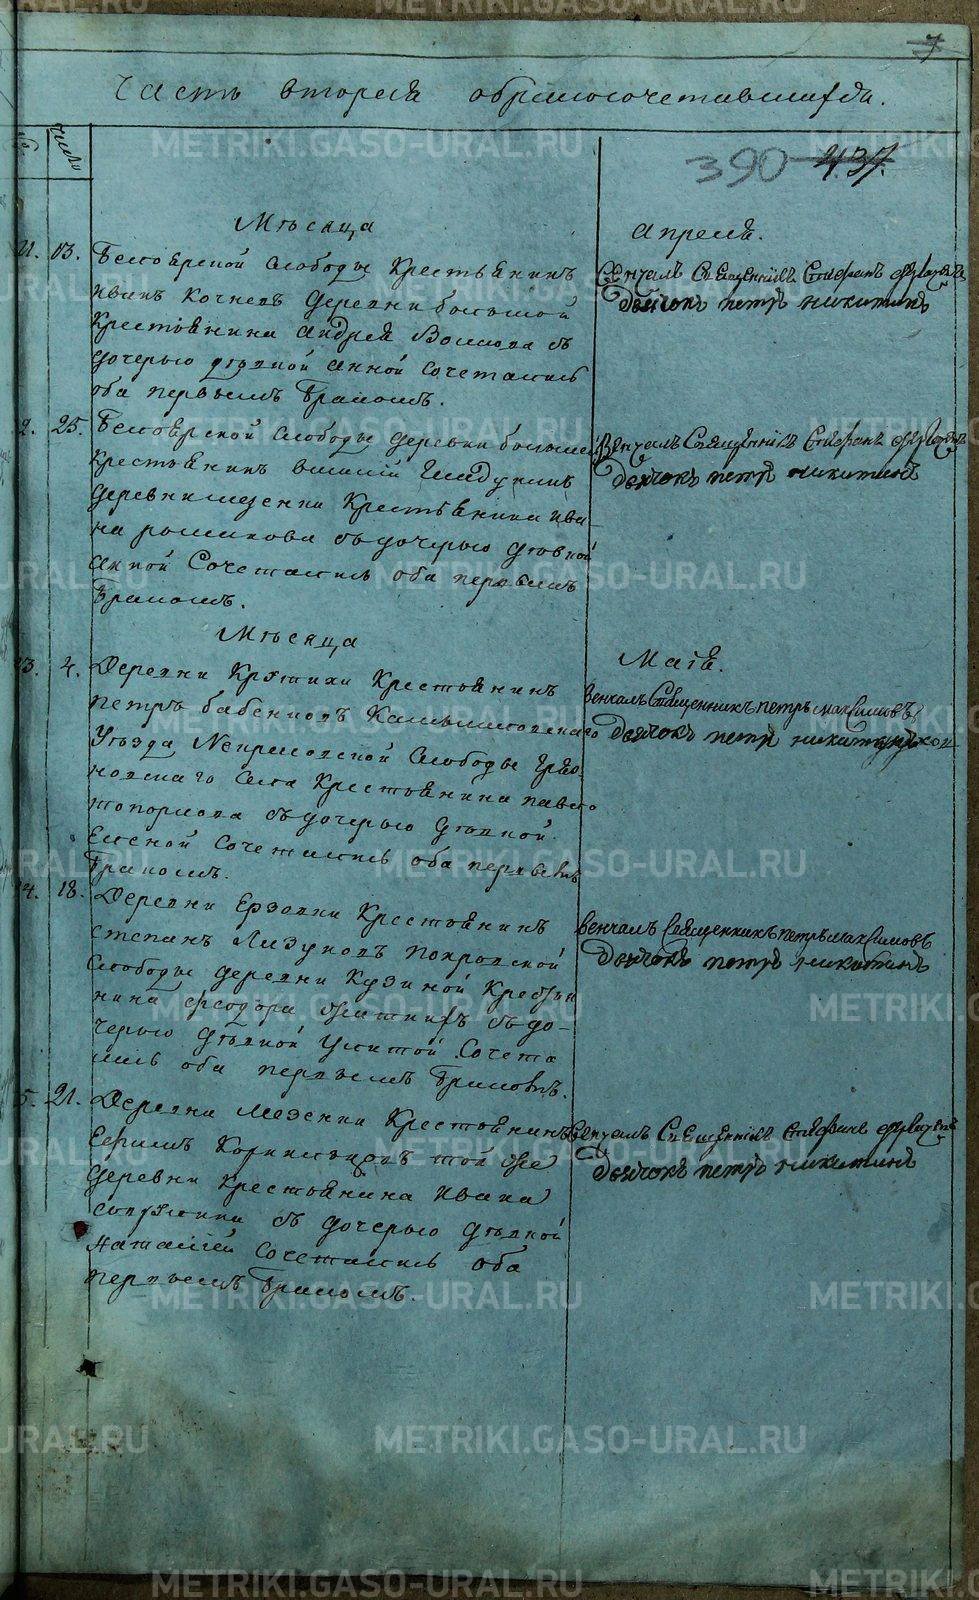 7
Часть вторая обракосочетавшихся.
№ число
390 437.
Мѣсяца Апреля.
13. Белоярской слободы крестьянинъ
Иванъ Кочневъ деревни большой
крестьянина Андрея съ
дочерью дѣвкой Анной сочетались
оба первымъ бракомъ.
Венчалъ священникъ Стефанъ
дьячокъ петръ никитинъ
2. 25. Белоярской слободы деревни большой
крестьянинъ
деревни мезенки крестьянина Ива-
на съ дочерью дѣвкой
Анной Сочетались оба первымъ
бракомъ.
Венчалъ священникъ Стефанъ
дьячокъ петръ никитинъ
Мѣсяца Маія.
23. 4. Деревни Крутихи крестьянинъ
петръ бабенковъ Камышловскаго
уѣзда, слободы
села крестьянина павла
топоркова съ дочерью дѣвкой
Еленой сочетались оба первымъ
бракомъ.
венчалъ священникъ петръ максимовъ
дьячокъ петръ никитинъ
24. 18. Деревни Ерзовки крестьянинъ
степанъ Лизуновъ покровской
слободы деревни Кузиной крестьян
нина феодора съ до-
черью дѣвкой Улитой сочета
лись оба первымъ бракомъ.
венчалъ священникъ петръ максимовъ
дьячокъ петръ никитинъ
5. 21. Деревни Мезенки крестьянинъ
Ефимъ Корнильцовъ той же
деревни крестьянина Ивана
съ дочерью дѣвкой
Наталіей сочетались оба
первымъ бракомъ.
Венчалъ священникъ Стефанъ
дьячокъ петръ никитинъ
METRIKI.GASO-URAL.RU